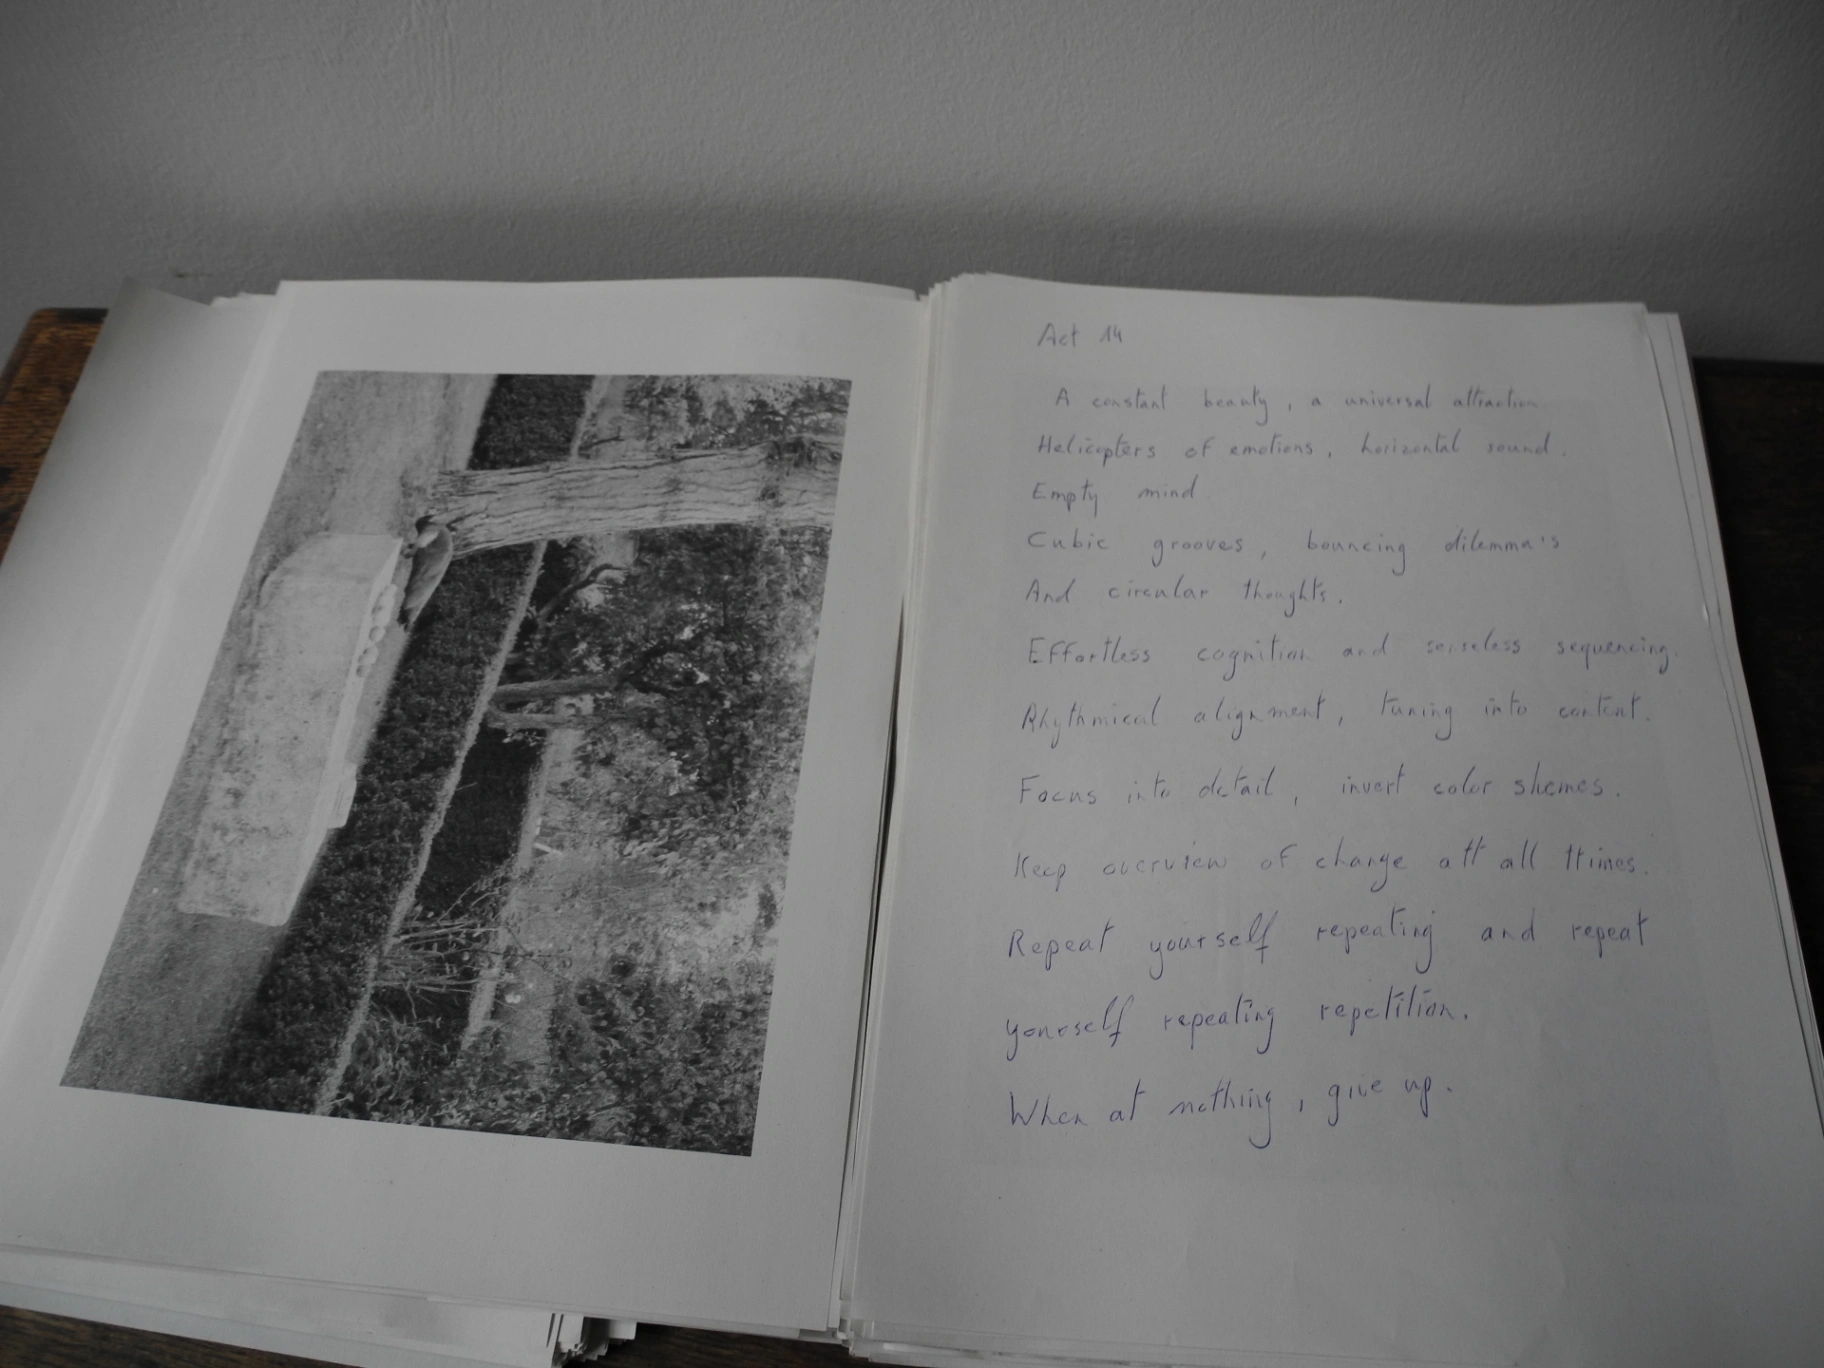 Act 14
A constant beauty, a universal attraction.
Helicopters of emotions, horizontal sound.
Empty mind
Cubic grooves, bouncing dilemma's
And circular thoughts.
Effortless cognition and senseless sequencing.
Rhythmical alignment, tuning into content.
Focus into detail, invert color shemes.
Keep overview of change att all ttimes.
Repeat yourself repeating and repeat
yourself repeating repetition.
When at nothing, give up.